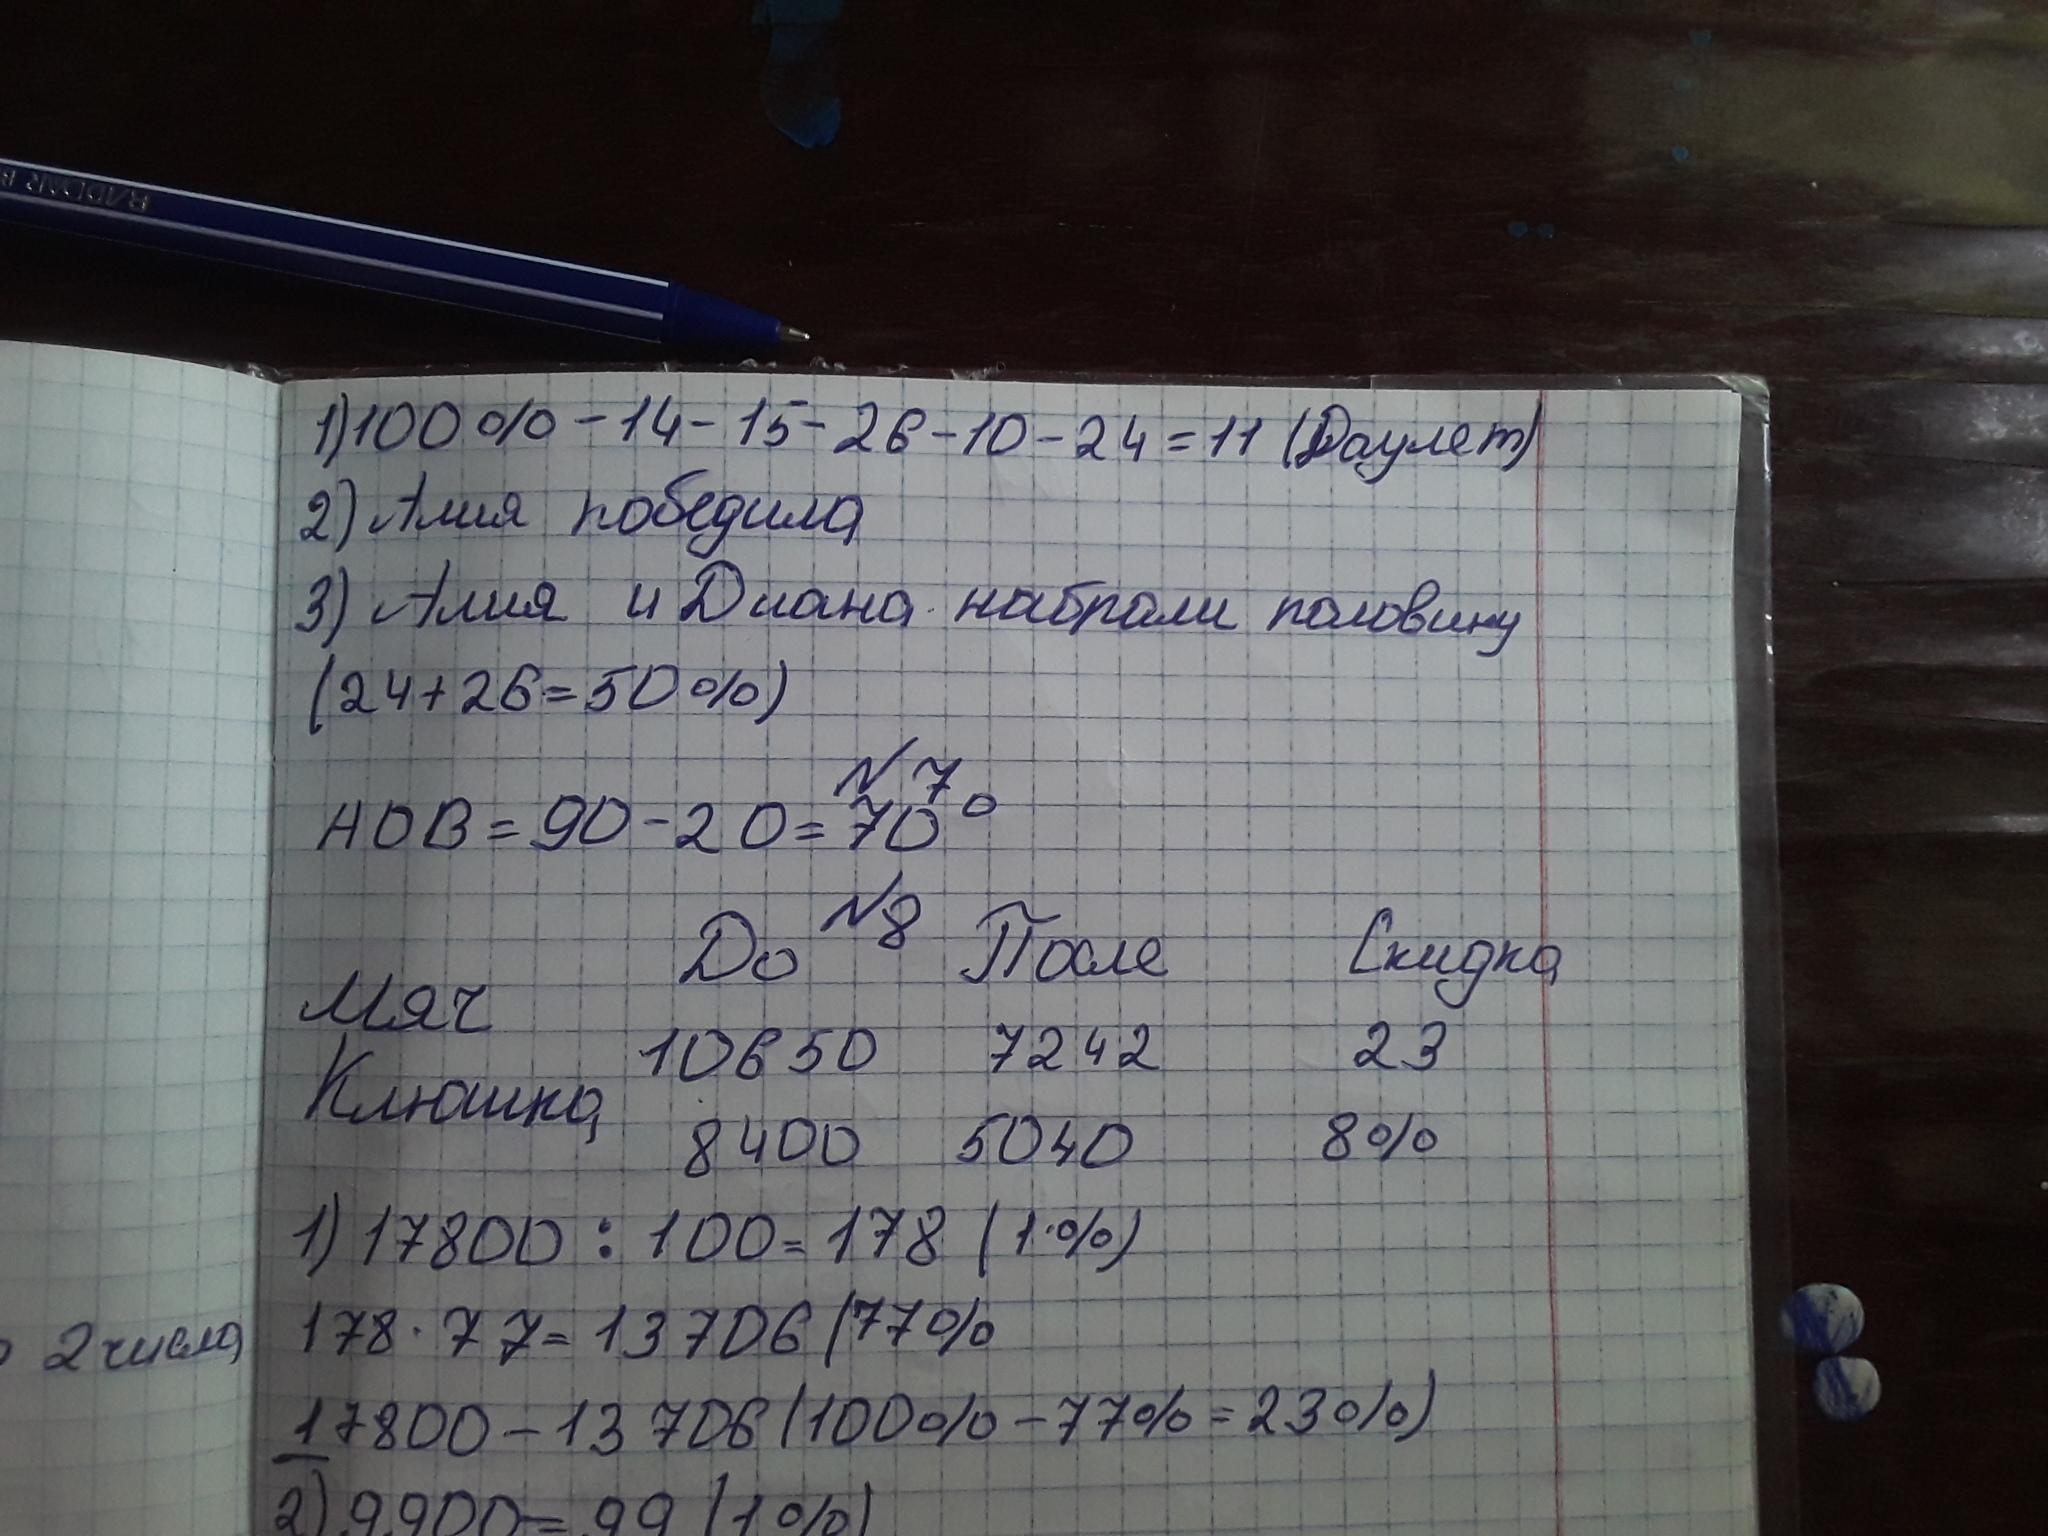 RADDAR B
1) 100% - 14 - 15 - 26 - 10 - 24 = 11 (Даулет)
2) Алия победила
3) Алия и Диана набрали половину
(24 + 26 = 50%)
N7
АОВ = 90 - 20 = 70°
N8
До После Скидка
Мяч
10650 7242 23
Клюшка
8400 5040 8%
1) 17800 : 100 = 178 (1%)
178 · 77 = 13706 (77%
17800 - 13706 (100% - 77% = 23%)
2) 9900 = 99 (1%)
2 числа